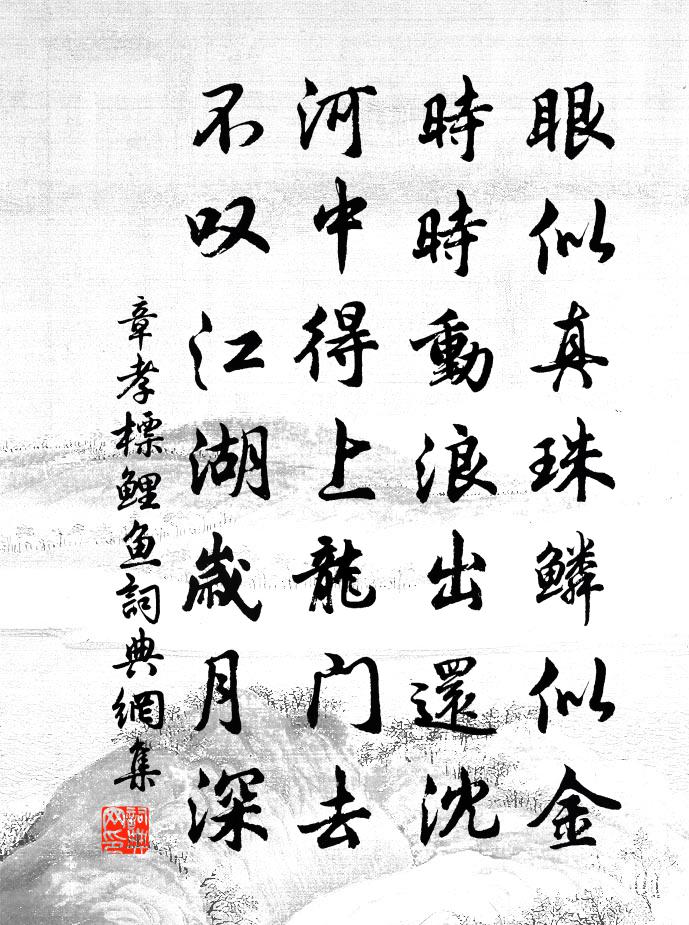 眼似真珠鱗似金
時時動浪出還沈
河中得上龍门去
不叹江湖歲月深
章孝標鲤鱼詞典網集